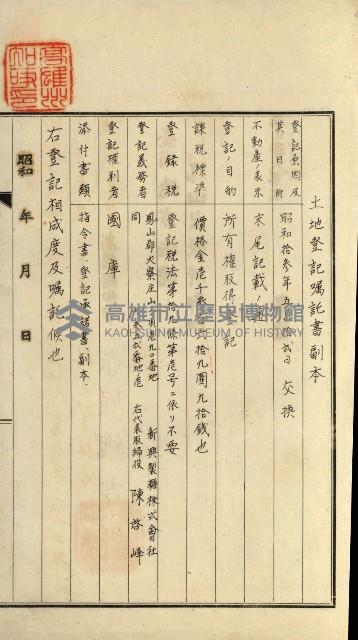 土地登記嘱託書副本
登記原因及其日附 昭和拾参年五月拾弐日 交換
不動産ノ表示 末尾記載ノ通
登記ノ目的 所有權取得登記
課税標準 價格金壱千 拾九圓九拾銭也
登録税 登記税法第拾九條第壱号ニ依リ不要
登記義務者 鳳山郡大寮庄山 九〇番地 新興製糖株式會社
同 番地 右代表取締役 陳啓峰
登記權利者 國庫
添付書類 指令書、登記承諾書、副本、
右登記相成度及嘱託候也
昭和 年 月 日
高雄州知事印
高雄市立歷史博物館
KAOHSIUNG MUSEUM OF HISTORY